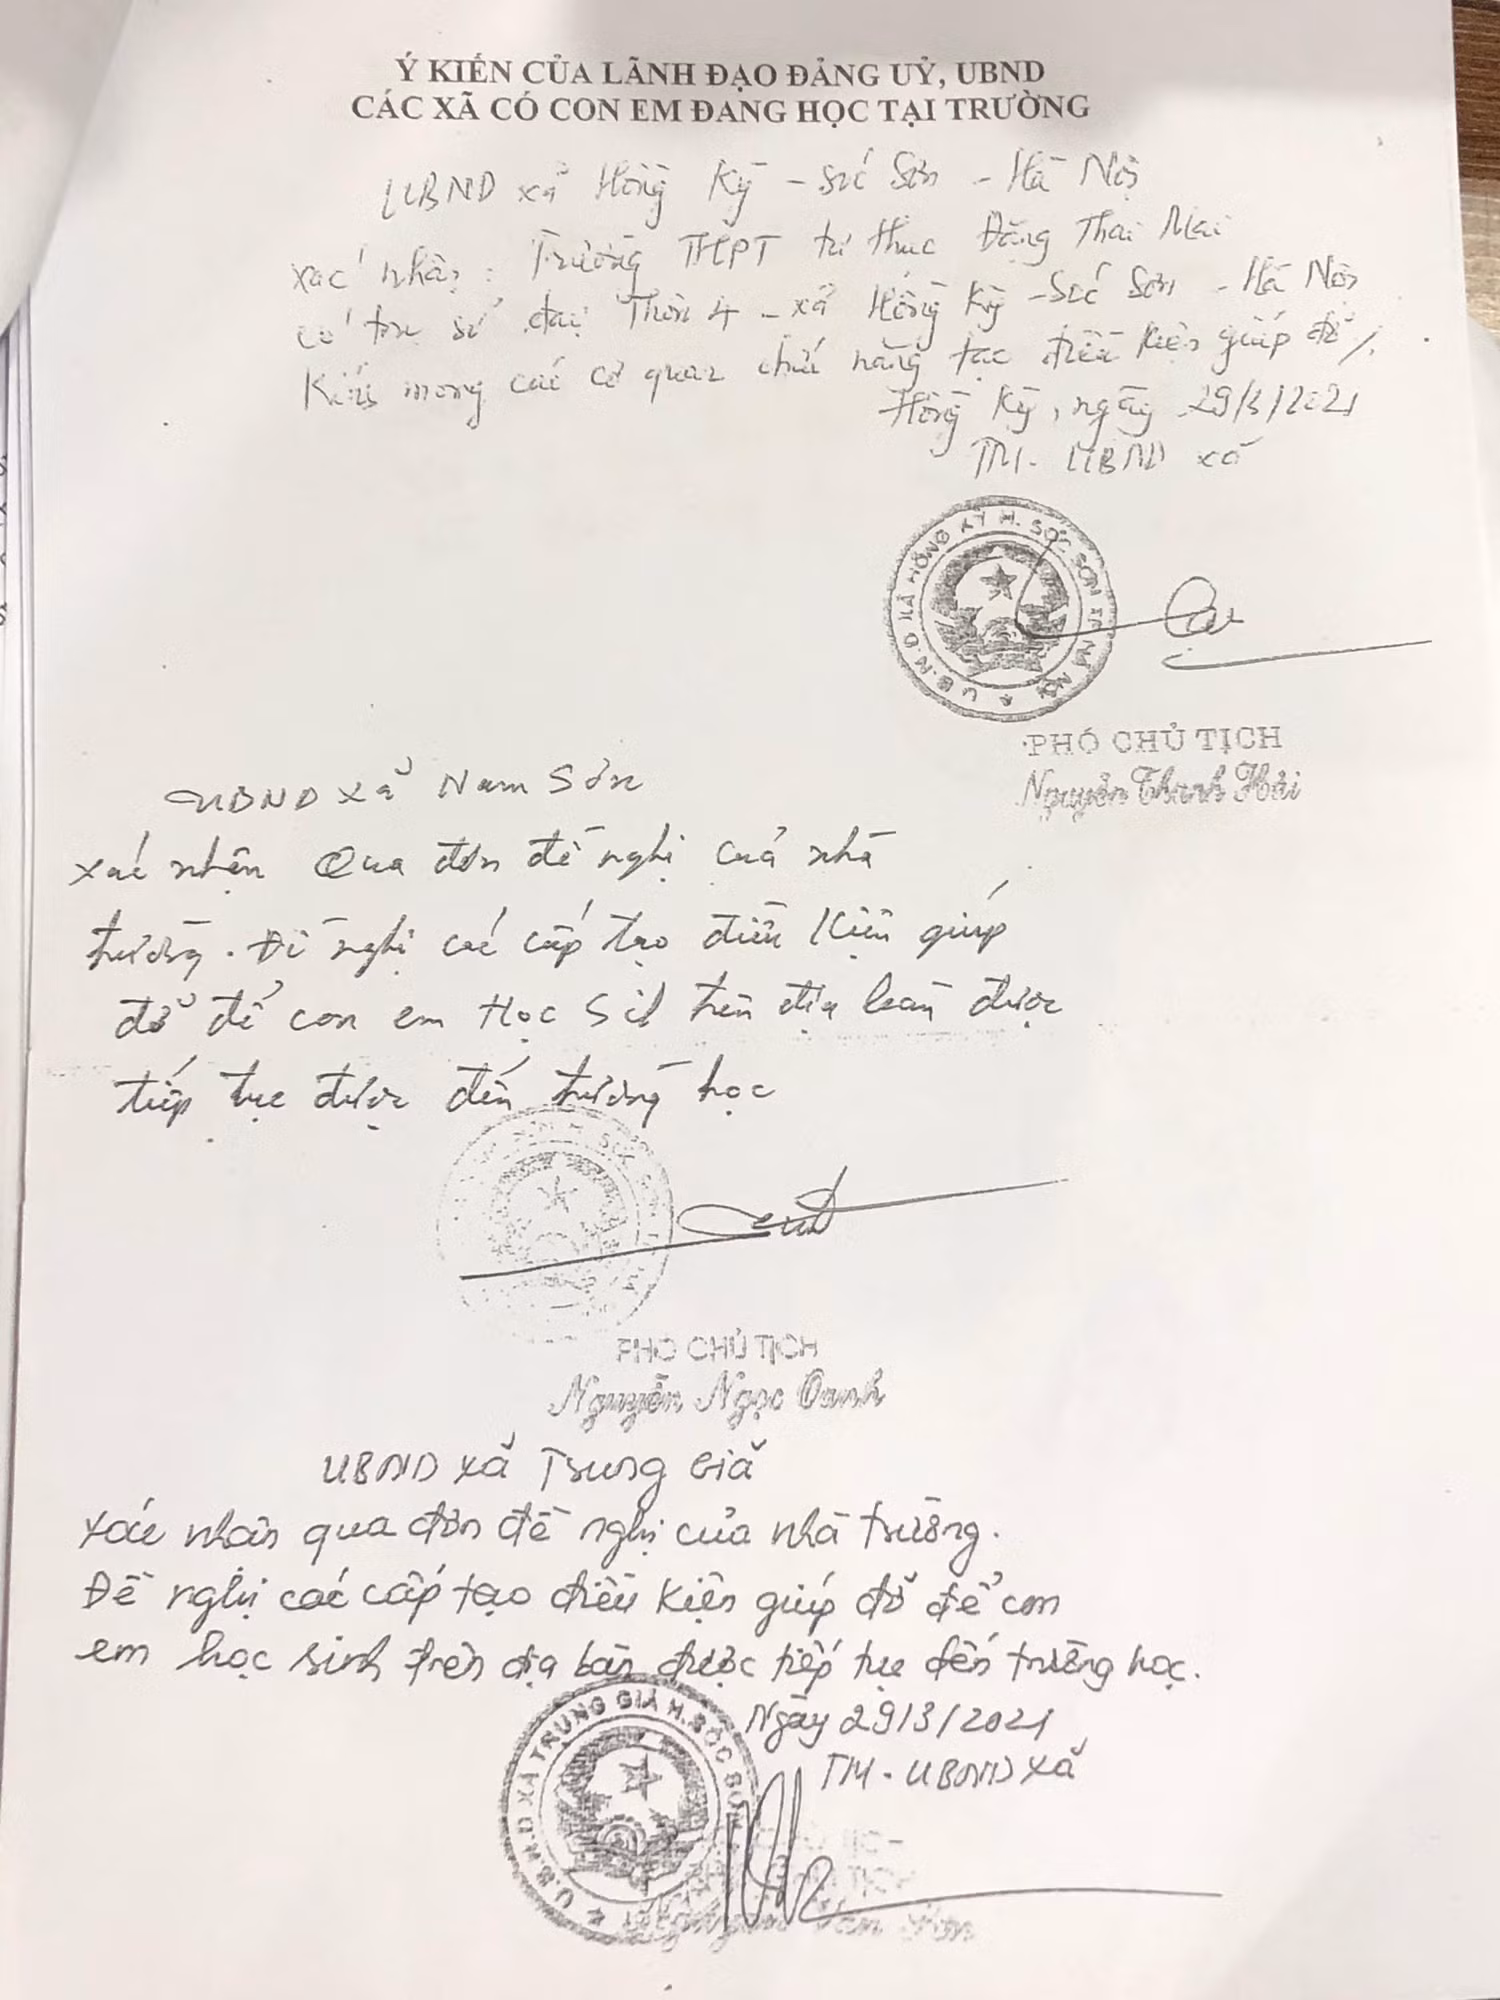 Ý KIẾN CỦA LÃNH ĐẠO ĐẢNG UỶ, UBND
CÁC XÃ CÓ CON EM ĐANG HỌC TẠI TRƯỜNG
UBND xã Hồng Kỳ - Sóc Sơn - Hà Nội
xác nhận: Trường THPT tư thục Đặng Thai Mai
có trụ sở tại Thôn 4 - xã Hồng Kỳ - Sóc Sơn - Hà Nội
Kính mong các cơ quan chức năng tạo điều kiện giúp đỡ/.
Hồng Kỳ, ngày 29/3/2021
TM. UBND xã
U.B.N.D XÃ HỒNG KỲ H. SÓC SƠN TP. HÀ NỘI
PHÓ CHỦ TỊCH
Nguyễn Thanh Hải
UBND xã Nam Sơn
xác nhận Qua đơn đề nghị của nhà
trường. Đề nghị các cấp tạo điều kiện giúp
đỡ để con em Học Sil trên địa bàn được
tiếp tục được đến trường học
PHÓ CHỦ TỊCH
Nguyễn Ngọc Oanh
UBND xã Trung Giã
xác nhận qua đơn đề nghị của nhà trường.
Đề nghị các cấp tạo điều kiện giúp đỡ để con
em học sinh trên địa bàn được tiếp tục đến trường học.
Ngày 29/3/2021
TM. UBND xã
U.B.N.D XÃ TRUNG GIÃ H. SÓC SƠN